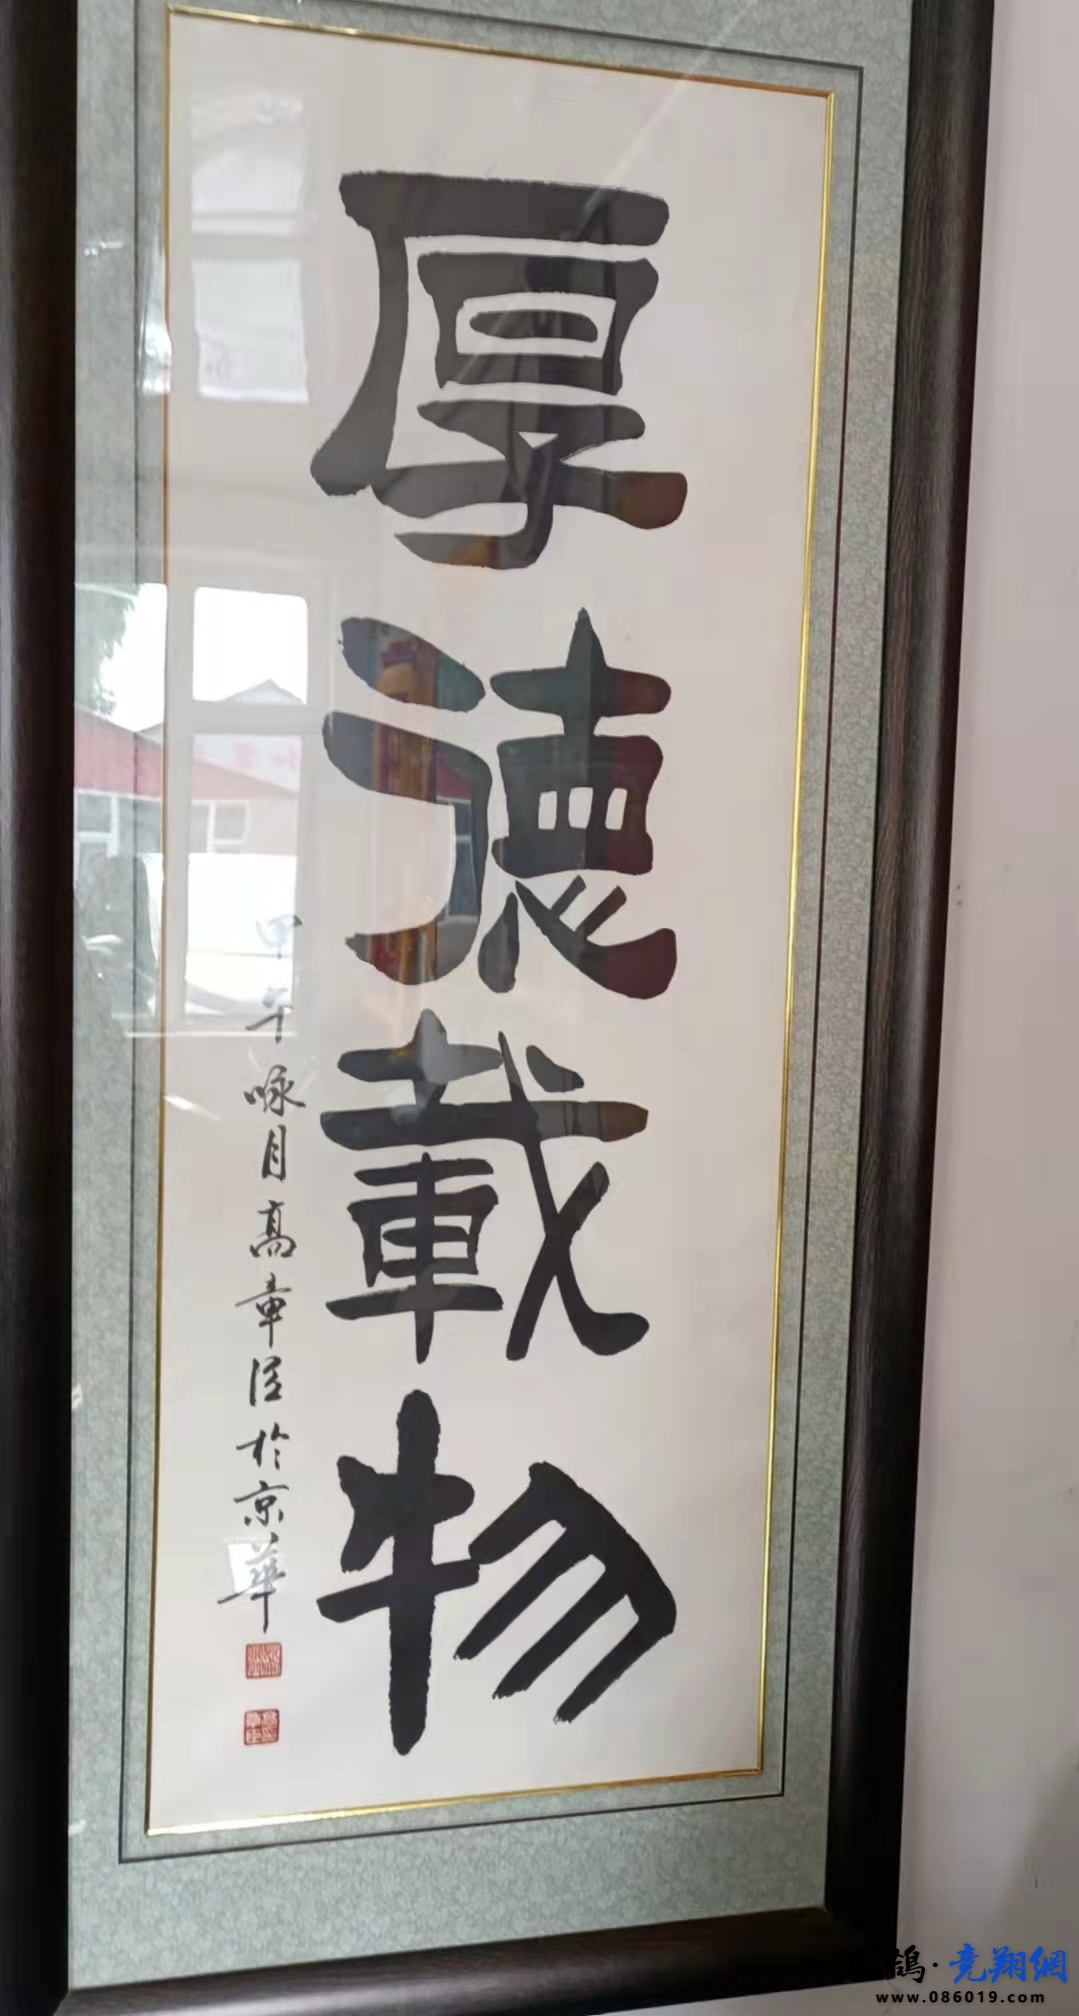 厚德載物
午咏月高章臣於京華
鸽·竞翔網
www.086019.com